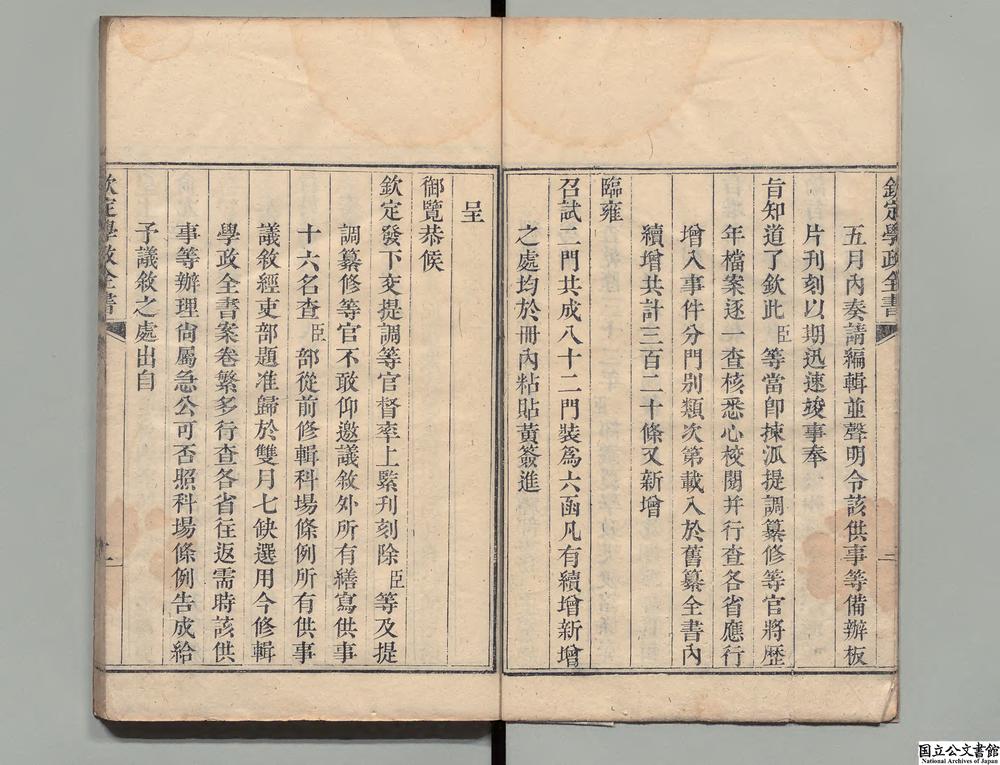 欽定學政全書
二
五月內奏請編輯並聲明令該供事等備辦板
片刊刻以期迅速竣事奉
旨知道了欽此臣等當卽揀派提調纂修等官將歷
年檔案逐一查核悉心校閱并行查各省應行
增入事件分門別類次第載入於舊纂全書內
續增共計三百二十條又新增
臨雍
召試二門共成八十二門裝爲六函凡有續增新增
之處均於冊內粘貼黃簽進
呈
御覽恭候
欽定發下交提調等官督率上緊刋刻除臣等及提
調纂修等官不敢仰邀議敘外所有繕寫供事
十六名查臣部從前修輯科場條例所有供事
議敘經吏部題准歸於雙月七缺選用今修輯
學政全書案卷繁多行查各省往返需時該供
事等辦理尙屬急公可否照科場條例告成給
予議敘之處出自
欽定學政全書
國立公文書館
National Archives of Japan